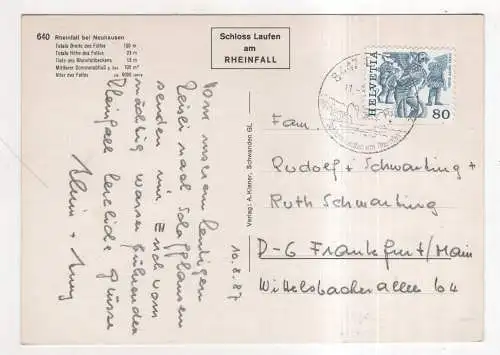 640 Rheinfall bei Neuhausen
Totale Breite des Falles 150 m
Totale Höhe des Falles 23 m
Tiefe des Rheinfallbeckens 13 m
Mittlerer Sommerabfluß p. Sek. 700 m³
Alter des Falles ca. 6000 Jahre
Schloss Laufen
am
RHEINFALL
HELVETIA
80
Verlag: A. Kleiner, Schwanden GL
10.8.87
Von unserem heutigen
Reisli nach Schaffhausen
senden wir Euch vom
mächtig wasserführenden
Rheinfall herzliche Grüsse
Fam.
Rudolf + Schwarting +
Ruth Schwarting
D-6 Frankfurt/Main
Wittelsbacher allee 64